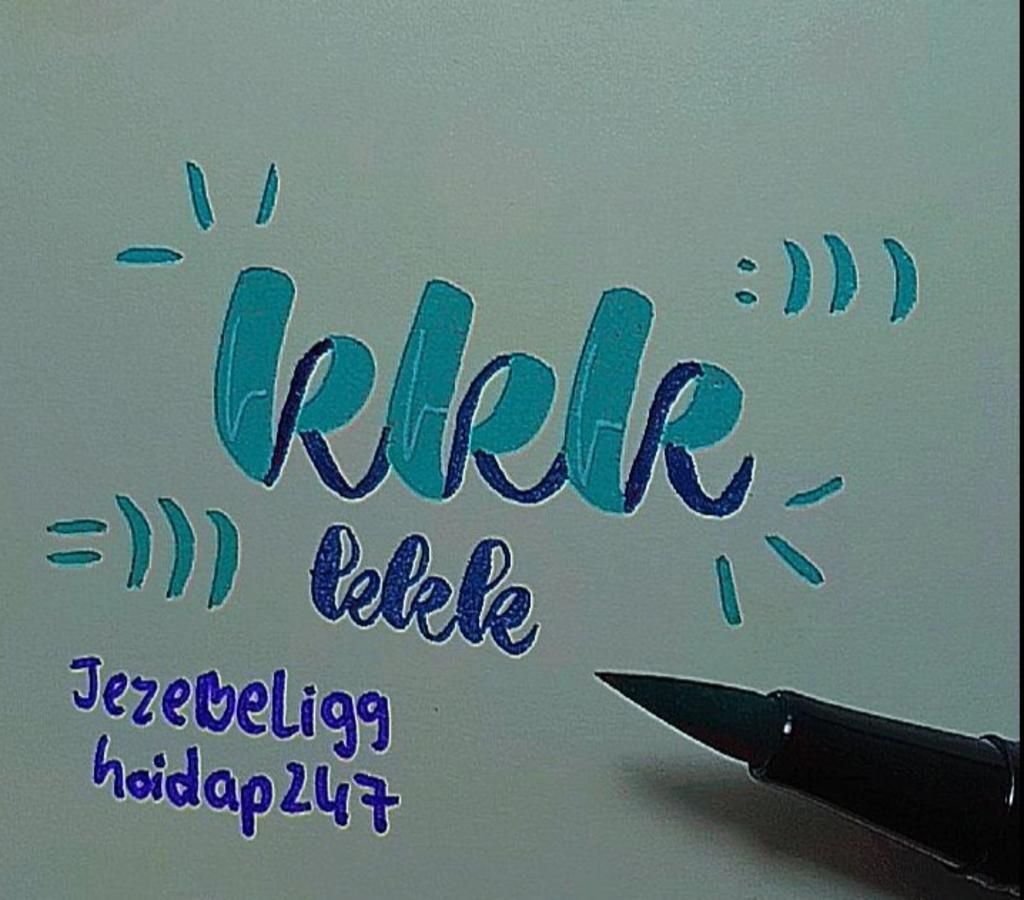 kkk :)))
=))) kkk
Jezebeligg
hoidap247